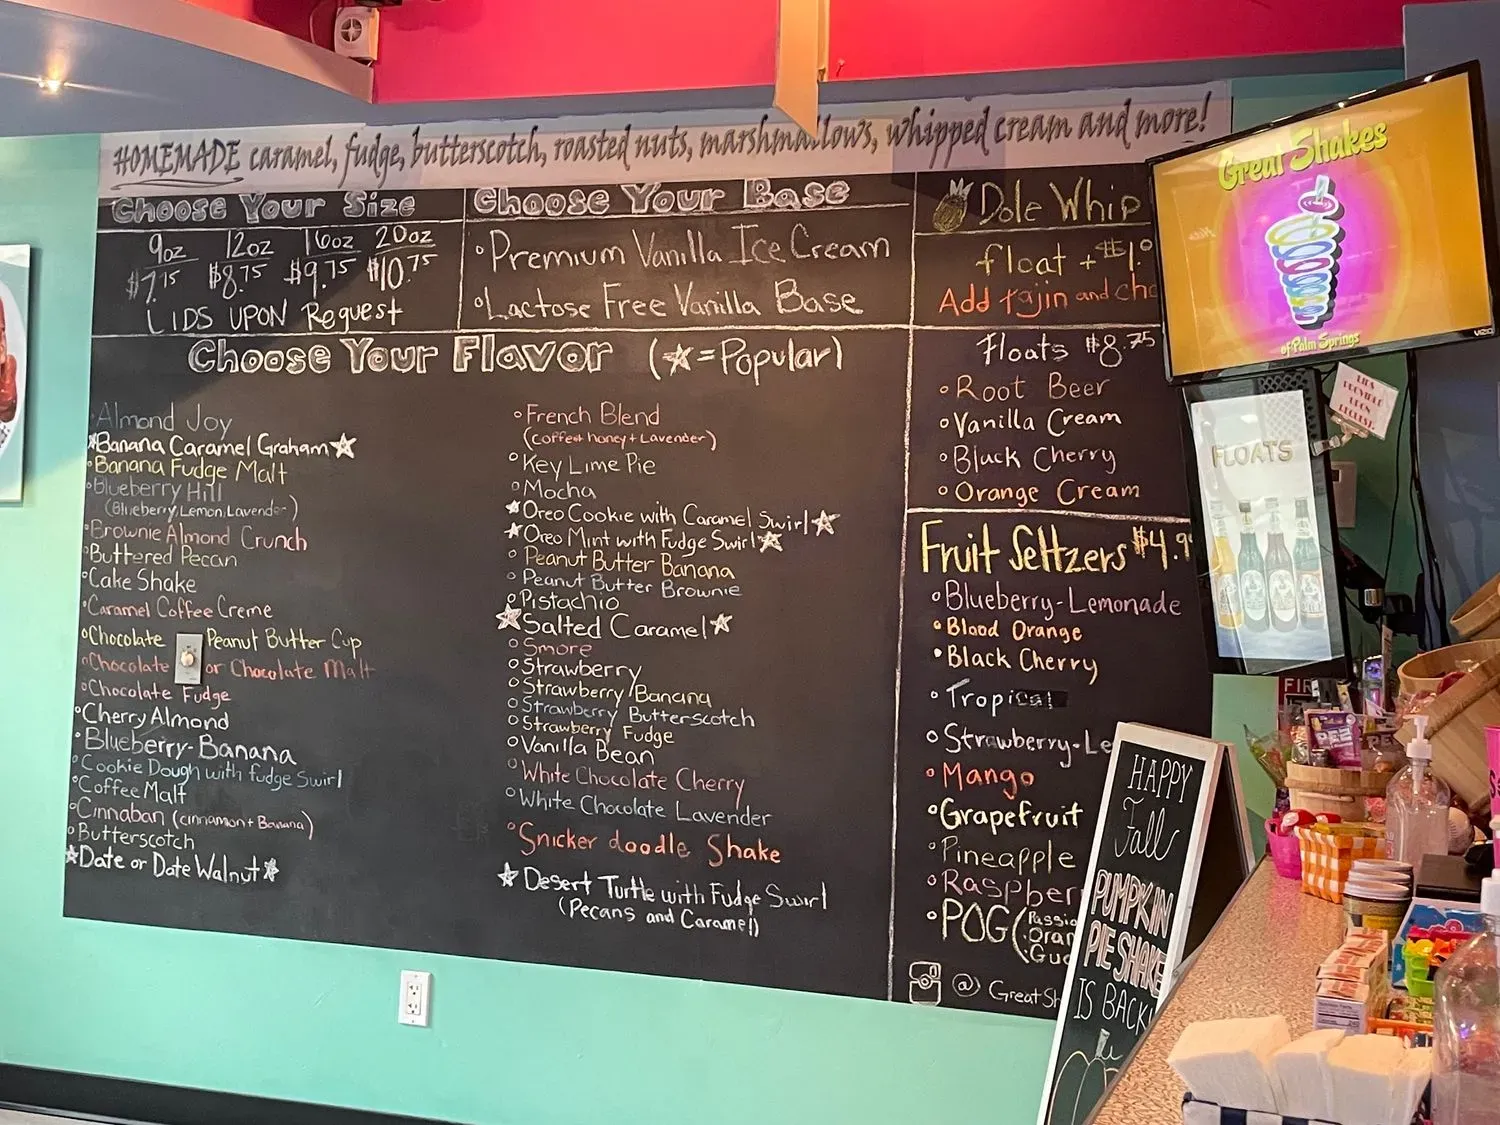 HOMEMADE caramel, fudge, butterscotch, roasted nuts, marshmallows, whipped cream and more!
Choose Your Size
9oz 12oz 16oz 20oz
$7.15 $8.75 $9.75 $10.75
LIDS UPON Request
Choose Your Base
Premium Vanilla Ice Cream
Lactose Free Vanilla Base
Choose Your Flavor (☆=Popular)
Almond Joy
Banana Caramel Graham
Banana Fudge Malt
Blueberry Hill
(Blueberry, Lemon, Lavender)
Brownie Almond Crunch
Buttered Pecan
Cake Shake
Caramel Coffee Creme
Chocolate Peanut Butter Cup
Chocolate or Chocolate Malt
Chocolate Fudge
Cherry Almond
Blueberry-Banana
Cookie Dough with fudge Swirl
Coffee Malt
Cinnaban (cinnamon + Banana)
Butterscotch
Date or Date Walnut
French Blend
(coffee+ honey + Lavender)
Key Lime Pie
Mocha
Oreo Cookie with Caramel Swirl
Oreo Mint with Fudge Swirl
Peanut Butter Banana
Peanut Butter Brownie
Pistachio
Salted Caramel
Smore
Strawberry
Strawberry Banana
Strawberry Butterscotch
Strawberry Fudge
Vanilla Bean
White Chocolate Cherry
White Chocolate Lavender
Snicker doodle Shake
Desert Turtle with Fudge Swirl
(Pecans and Caramel)
Dole Whip
float +
Add tajin and
Floats $8.75
Root Beer
Vanilla Cream
Black Cherry
Orange Cream
Fruit Seltzers
Blueberry-Lemonade
Blood Orange
Black Cherry
Tropical
Strawberry-Le
Mango
Grapefruit
Pineapple
Raspber
POG
@ GreatSh
Great Shakes
of Palm Springs
VIZIO
LIDS
PROVIDED
UPON
REQUEST.
FLOATS
PEZ
HAPPY
Fall
PUMPKIN
PIE SHAKE
IS BACK!